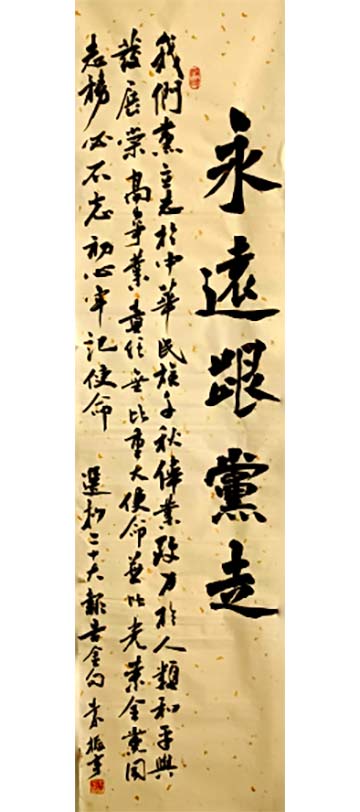 永遠跟黨走
我們黨立志於中華民族千秋偉業致力於人類和平與
發展崇高事業責任無比重大使命無比光榮全黨同
志務必不忘初心牢記使命 選於二十大報告金句